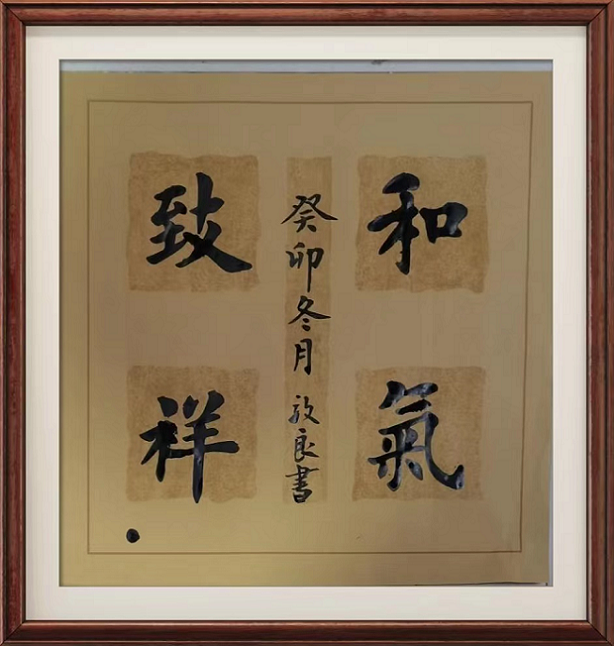 和氣
致祥
癸卯冬月 敬良書